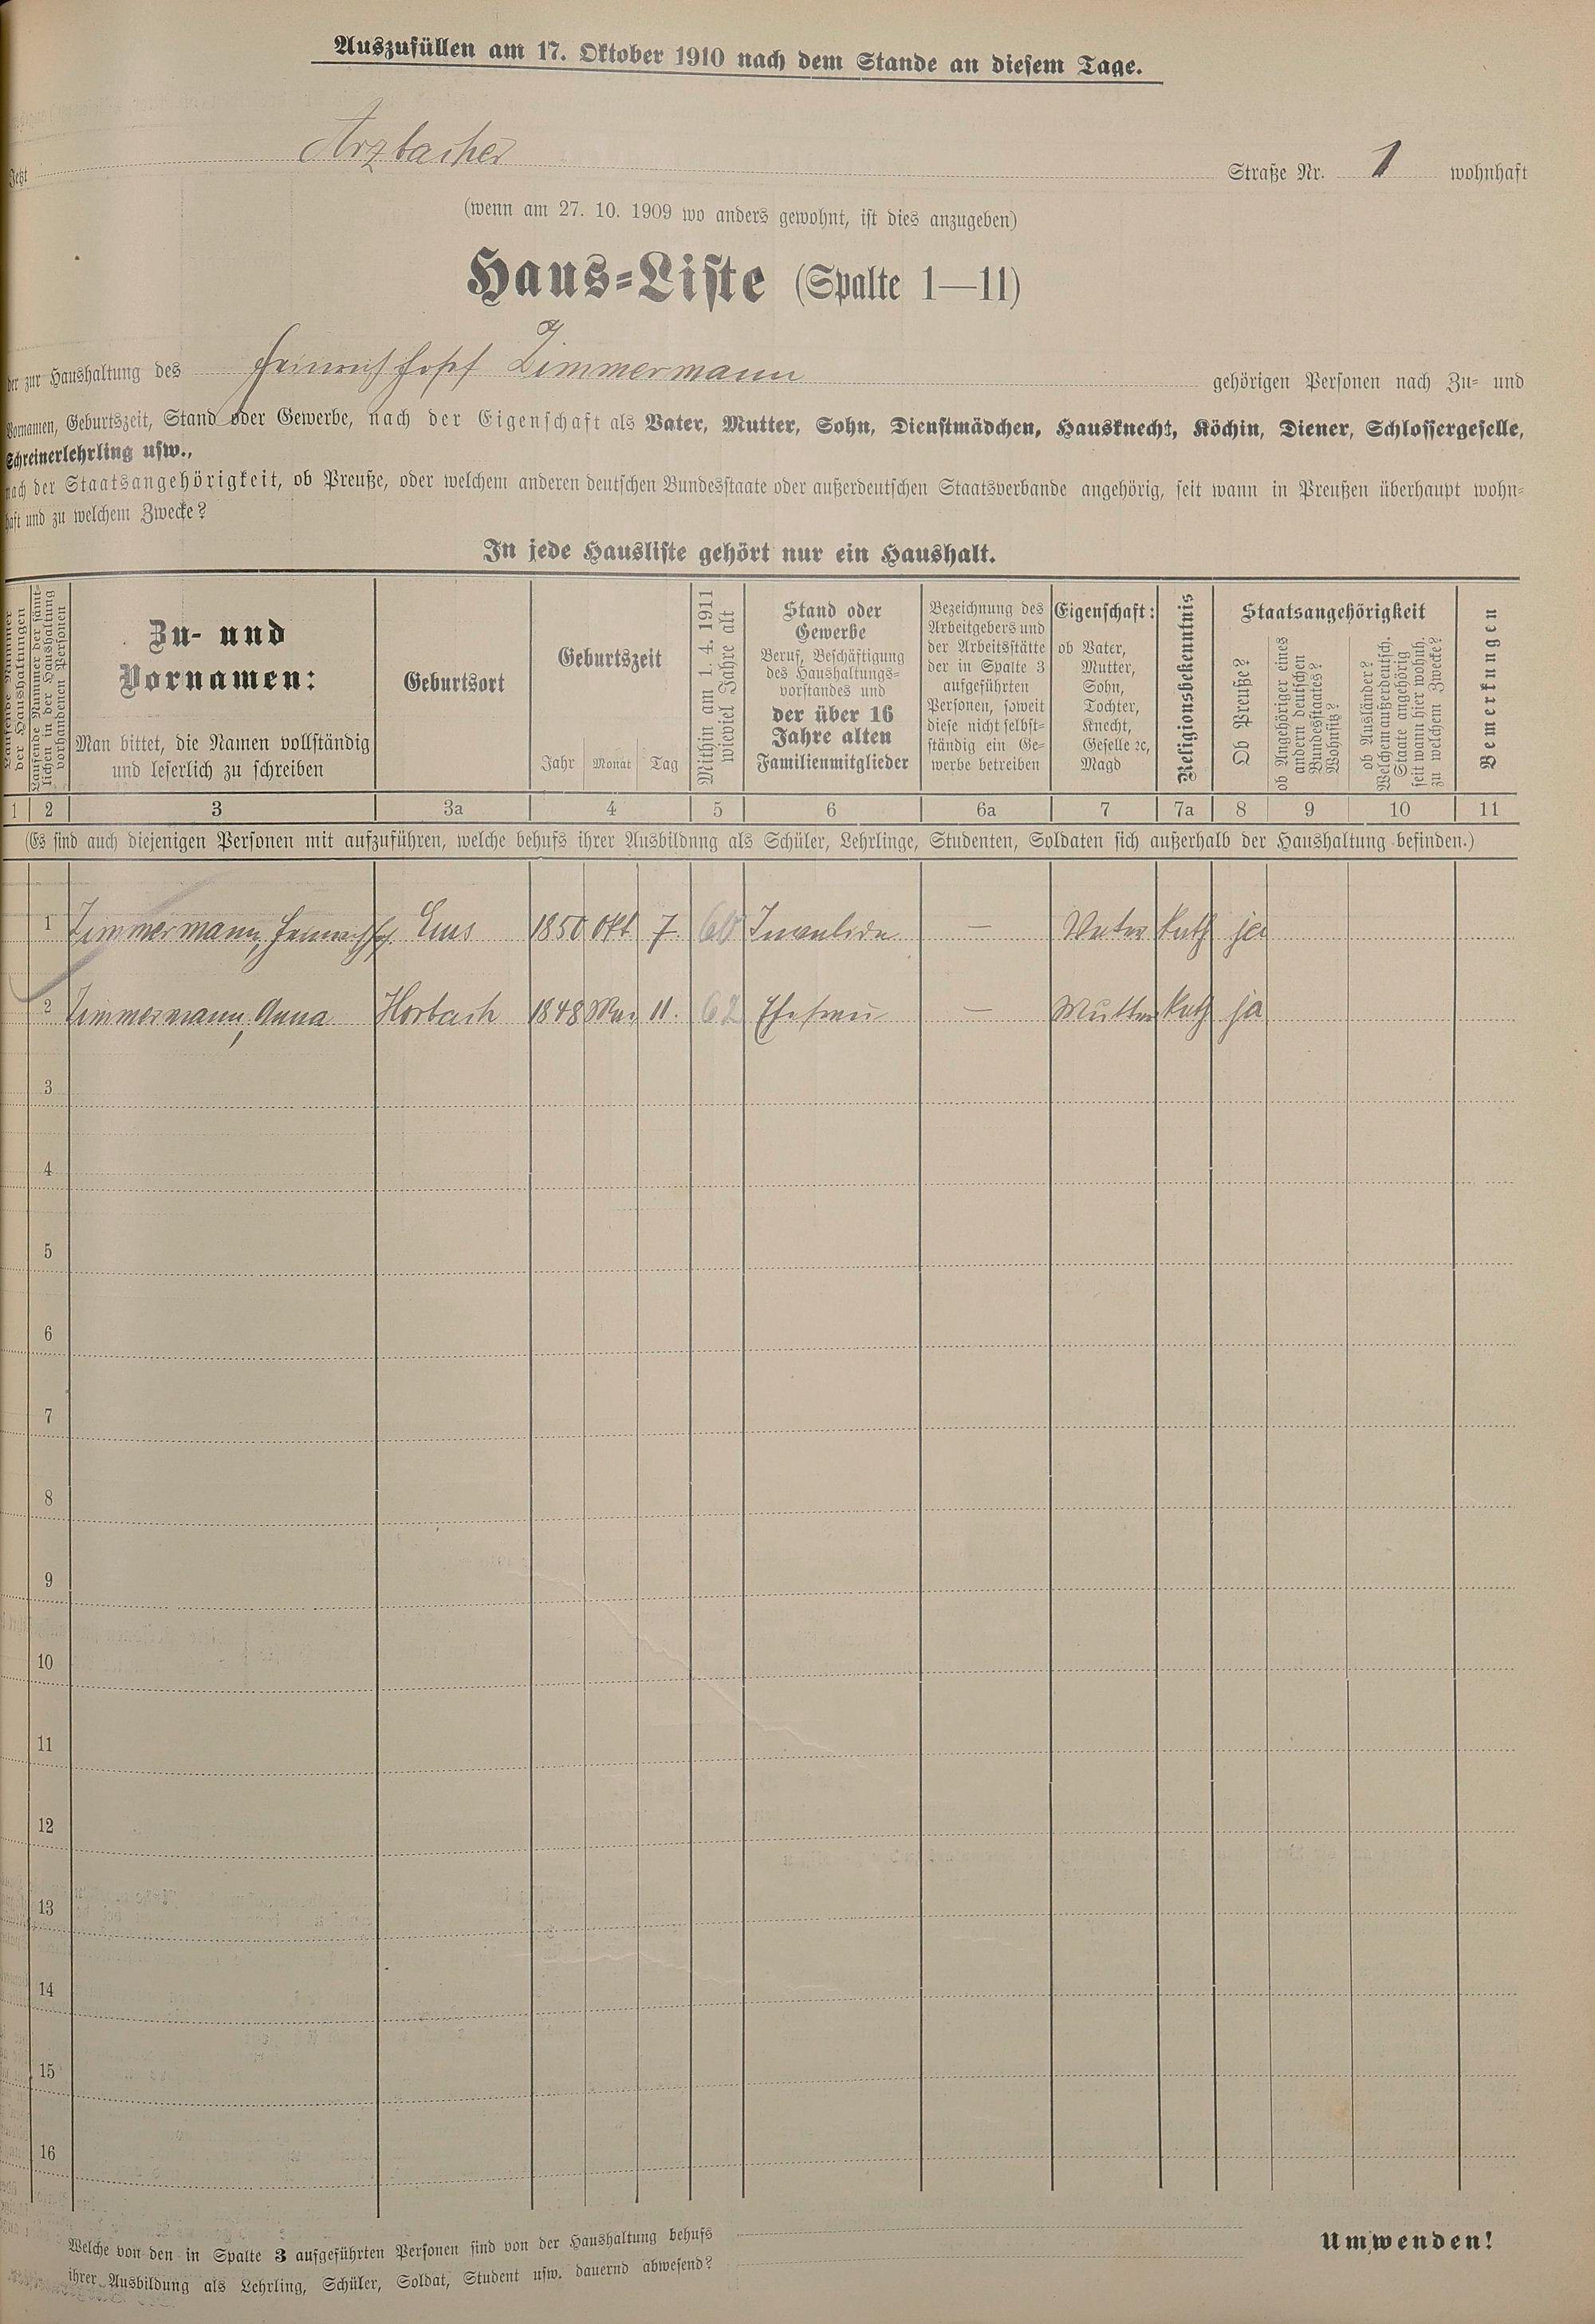 Auszufüllen am 17. Oktober 1910 nach dem Stande an diesem Tage.
Jetzt Arzbacher Straße Nr. 1 wohnhaft
(wenn am 27. 10. 1909 wo anders gewohnt, ist dies anzugeben)
Haus-Liste (Spalte 1—11)
der zur Haushaltung des Heinrich Josef Zimmermann gehörigen Personen nach Zu- und
Vornamen, Geburtszeit, Stand oder Gewerbe, nach der Eigenschaft als Vater, Mutter, Sohn, Dienstmädchen, Hausknecht, Köchin, Diener, Schlossergeselle,
Schreinerlehrling usw.,
nach der Staatsangehörigkeit, ob Preuße, oder welchem anderen deutschen Bundesstaate oder außerdeutschen Staatsverbande angehörig, seit wann in Preußen überhaupt wohn-
haft und zu welchem Zwecke?
In jede Hausliste gehört nur ein Haushalt.
Laufende Nummer
der Haushaltungen
Laufende Nummer der sämt-
lichen in der Haushaltung
vorhandenen Personen
Zu- und
Vornamen:
Man bittet, die Namen vollständig
und leserlich zu schreiben
Geburtsort
Geburtszeit
Jahr Monat Tag
Mithin am 1. 4. 1911
wieviel Jahre alt
Stand oder
Gewerbe
Beruf, Beschäftigung
des Haushaltungs-
vorstandes und
der über 16
Jahre alten
Familienmitglieder
Bezeichnung des
Arbeitgebers und
der Arbeitsstätte
der in Spalte 3
aufgeführten
Personen, soweit
diese nicht selbst-
ständig ein Ge-
werbe betreiben
Eigenschaft:
ob Vater,
Mutter,
Sohn,
Tochter,
Knecht,
Geselle ꝛc,
Magd
Religionsbekenntnis
Staatsangehörigkeit
Ob Preuße?
ob Angehöriger eines
andern deutschen
Bundesstaates?
Wohnsitz?
ob Ausländer?
Welchem außerdeutsch.
Staate angehörig
seit wann hier wohnh.
zu welchem Zwecke?
Bemerkungen
1 2 3 3a 4 5 6 6a 7 7a 8 9 10 11
(Es sind auch diejenigen Personen mit aufzuführen, welche behufs ihrer Ausbildung als Schüler, Lehrlinge, Studenten, Soldaten sich außerhalb der Haushaltung befinden.)
1 Zimmermann, Heinrich Jos. Ems 1850 Okt. 7. 60 Invalide — Vater Kath ja
2 Zimmermann, Anna Horbach 1848 Mai 11. 62 Ehefrau — Mutter Kath ja
3
4
5
6
7
8
9
10
11
12
13
14
15
16
Welche von den in Spalte 3 aufgeführten Personen sind von der Haushaltung behufs
ihrer Ausbildung als Lehrling, Schüler, Soldat, Student usw. dauernd abwesend?
Umwenden!